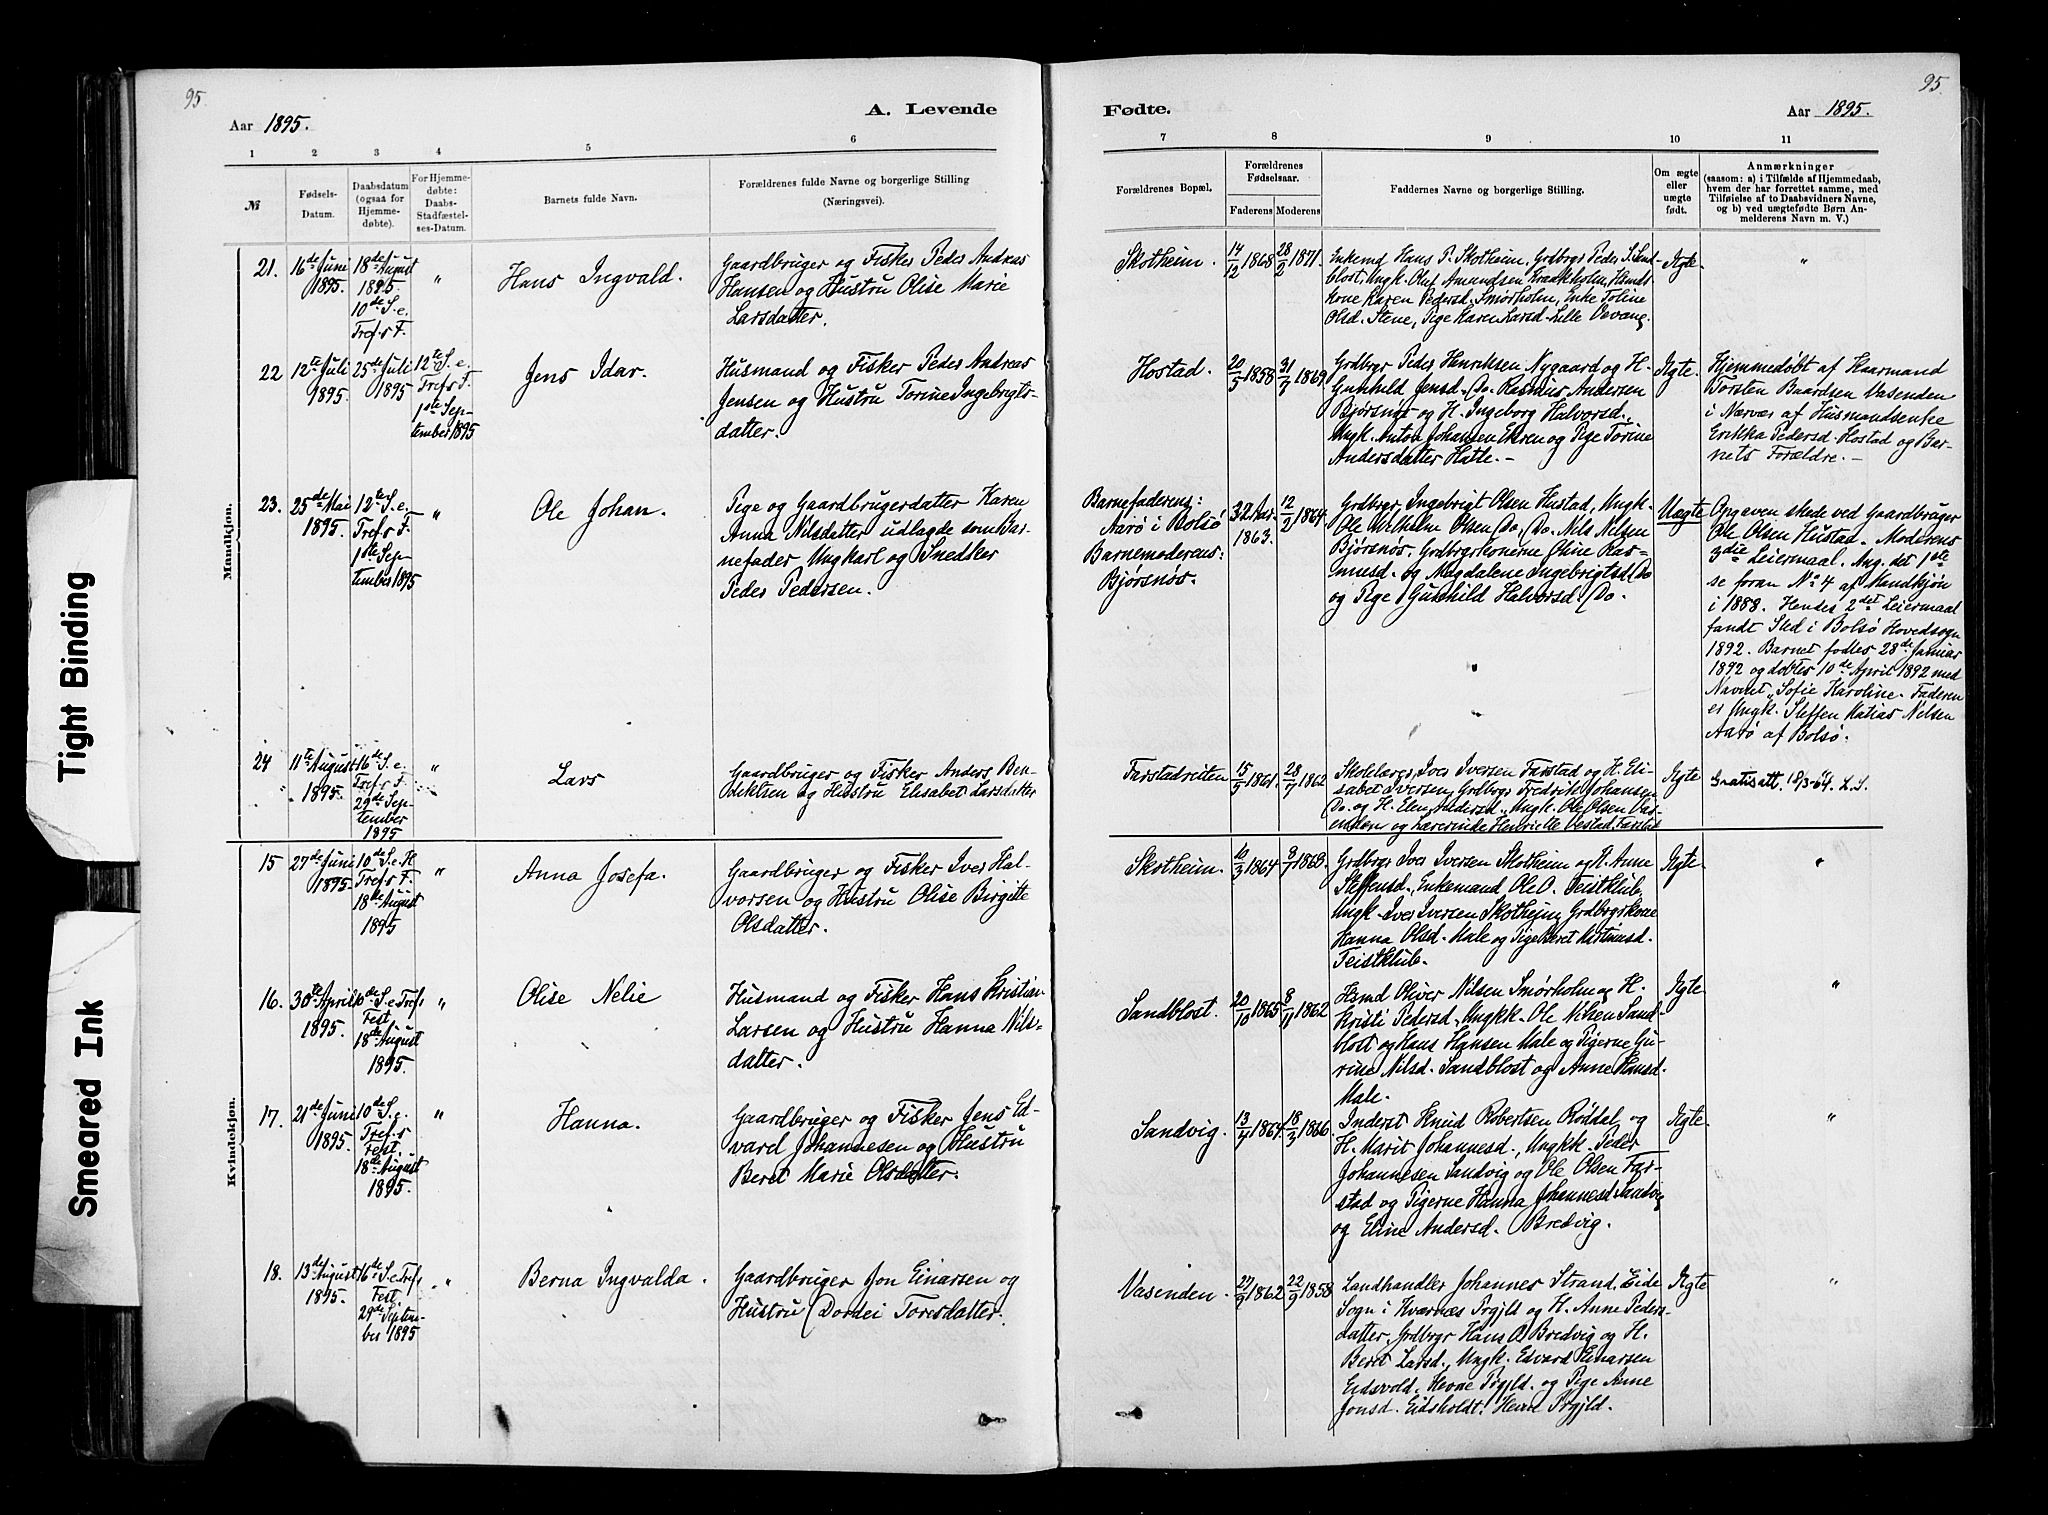 95
A. Levende
Aar 1895.
1 2 3 4 5 6
№
Fødsels-Datum.
Daabsdatum (ogsaa for Hjemmedøbte).
For Hjemmedøbte: Daabs-Stadfæstelses-Datum.
Barnets fulde Navn.
Forældrenes fulde Navne og borgerlige Stilling
(Næringsvei).
Mandkjøn.
21.
16de Juni
1895.
18de August
1895.
10de S. e.
Tref.s F.
"
Hans Ingvald.
Gaardbruger og Fisker Peder Andreas
Hansen og Hustru Olise Marie
Larsdatter.
22
12te Juli
1895.
25de Juli
1895
12te S. e.
Tref.s F.
1ste Sep-
tember 1895
Jens Idar.
Husmand og Fisker Peder Andreas
Jensen og Hustru Torine Ingebrigts-
datter.
23.
25de Mai
1895.
12te S. e.
Tref.s F.
1ste Sep-
tember 1895
"
Ole Johan.
Pige og Gaardbrugerdatter Karen
Anna Nilsdatter udlagde som Bar-
nefader Ungkarl og Snedker
Peder Pedersen.
24
11te August
1895.
16de S. e.
Tref.s F.
29de Sep-
tember
1895
"
Lars
Gaardbruger og Fisker Anders Ben-
diktsen og Hustru Elisabet Larsdatter
Kvindekjøn.
15
27de Juni
1895.
10de S. e. H.
Tref.s F.
18de August
1895
"
Anna Josefa.
Gaardbruger og Fisker Iver Hal-
vorsen og Hustru Olise Birgitte
Olsdatter.
16.
30te April
1895.
10de S. e Tref.
Fest
18de August
1895.
"
Olise Nelie
Husmand og Fisker Hans Kristian
Larsen og Hustru Hanna Nils-
datter.
17.
21de Juni
1895.
10de S. e.
Tref.s
Fest.
18de August
1895.
"
Hanna.
Gaardbruger og Fisker Jens Ed-
vard Johannesen og Hustru
Beret Marie Olsdatter.
18.
13de August
1895.
16de S. e Tref.
Fest.
29de Septem-
ber 1895
"
Berna Ingvalda.
Gaardbruger Jon Einarsen og
Hustru Dordei Toresdatter.
95
Fødte.
Aar 1895.
7 8 9 10 11
Forældrenes Bopæl.
Forældrenes Fødselsaar.
Faderens Moderens
Faddernes Navne og borgerlige Stilling.
Om ægte eller uægte født.
Anmærkninger
(saasom: a) i Tilfælde af Hjemmedaab,
hvem der har forrettet samme, med
Tilføielse af to Daabsvidners Navne,
og b) ved uægtefødte Børn An-
melderens Navn m. V.)
Skotheim.
14/12 1868
28/2 1871.
Enkemd Hans P. Skotheim, Grdbgr Peder S. Sand-
blost, Ungk. Oluf Amundsen Kraakholm, Hmds-
kone Karen Pedersd. Smørholm, Enke Toline
Olsd. Stene, Pige Karen Larsd. Lille Vevang.
Ægte.
"
Hostad.
20/5 1858
31/7 1869
Grdbgr Peder Henriksen Nygaard og H.
Gunhild Jensd. Do. Rasmus Andersen
Bjørsnøs og H. Ingeborg Halvorsd.
Ungk. Anton Johansen Ekren og Pige Torine
Andersdatter Hatle.-
Ægte.
Hjemmedøbt af Kaarmand
Torsten Baardsen Vasenden
i Nærvær af Husmandsenke
Erikka Pedersd. Hostad og Bar-
nets Forældre.-
Barnefaderens:
Aarø i Bolsø
Barnemoderens:
Bjørsnøs.
32 Aar
1863.
12/2 1864.
Grdbgr. Ingebrigt Olsen Hustad, Ungk.
Ole Vilhelm Olsen Do, Do. Nils Nilsen
Bjørsnøs. Grdbgrkonerne Oline Ras-
musd. og Magdalene Ingebrigtsd. Do
og Pige Gunhild Halvorsd. Do.
Uægte
Opgaven skede ved Gaardbruger
Ole Olsen Hustad. Moderens
3die Leiermaal. Ang. det 1ste
se foran No 4 af Mandkjøn
i 1888. Hendes 2det Leiermaal
fandt Sted i Bolsø Hovedsogn
1892. Barnet fødtes 28de Januar
1892 og døbtes 10de April 1892 med
Navnet "Sofie Karoline. Faderen
er Ungk. Steffen Matias Nilsen
Aarø af Bolsø.
Farstadreiten
15/5 1861.
28/7 1862
Skolelærer Iver Iversen Farstad og H. Eli-
sabet Iversen, Grdbgr Fredrik Johansen
Do. og H. Elen Andersd. Ungk. Ole Olsen Vas-
enden og Lærerinde Henriette Vestad, Farstad
Ægte
Gratisatt. 18/3-64. L.S.
Skotheim.
10/3 1864
1863.
Grdbgr Iver Iversen Skotheim og H. Anne
Steffensd., Enkemand Ole O. Teistklub,
Ungk. Iver Iversen Skotheim, Grdbgrkone
Hanna Olsd. Male og Pige Beret Kristinusd.
Teistklub.
Ægte.
"
Sandblost.
20/10 1865
1862
Hsmd Oliver Nilsen Smørholm og H.
Kristi Pedersd. Ungkk. Ole Nilsen Sand-
blost og Hans Hansen Male og Pigerne Gu-
rine Nilsd. Sandblost og Anne Hansd.
Male.
Ægte
"
Sandvig.
13/4 1864.
18/3 1866.
Inderst Knud Robertsen Røddal og
H. Marit Johannesd., Ungkk. Peder
Johannesen Sandvig og Ole Olsen Far-
stad og Pigerne Hanna Johannesd. Sandvig
og Eline Andersd. Bredvig.
Ægte
"
Vasenden.
27/9 1862
22/9 1858
Landhandler Johannes Strand. Eide
Sogn i Kværnes Prgjld og H. Anne Peders-
datter, Grdbgr Hans O. Bredvig og H.
Beret Larsd., Ungk. Edvard Einarsen
Eidsvold, Hevne Prgjld. og Pige Anne
Jonsd. Eidsholdt. Hevn Prgjld.
Ægte
"
Tight Binding
Smeared Ink